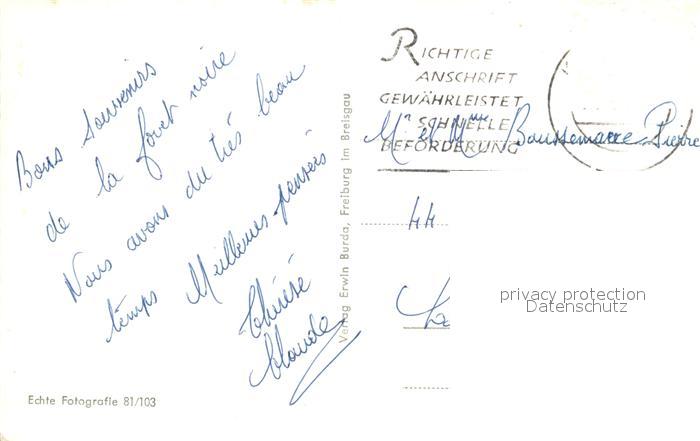 Bons Souvenirs
de la foret noire
Nous avons du très beau
temps Meilleures pensées
Thérèse
Claude
Echte Fotografie 81/103
Verlag Erwin Burda, Freiburg im Breisgau
RICHTIGE
ANSCHRIFT
GEWÄHRLEISTET
SCHNELLE
BEFÖRDERUNG
Mr et Mme Boussemaere Pierre
44
privacy protection
Datenschutz